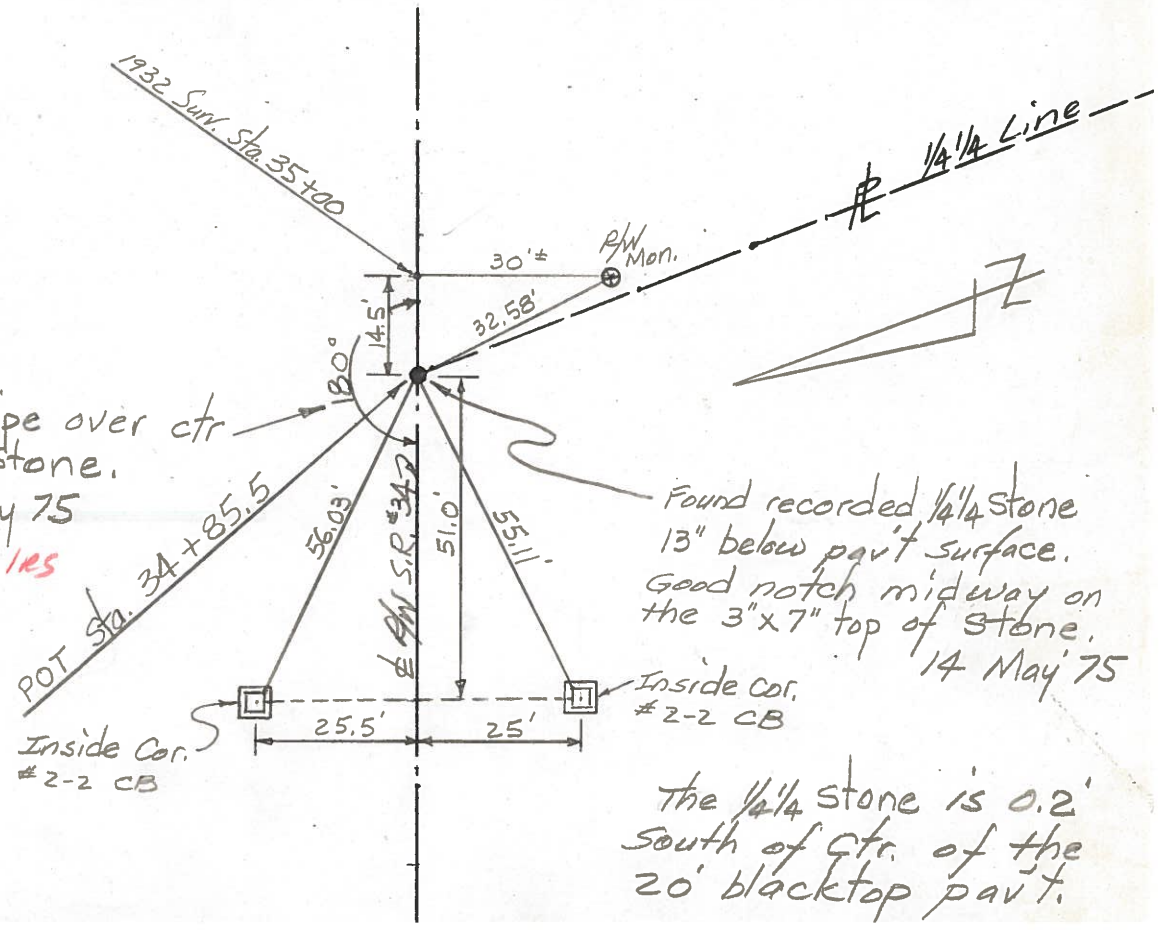 1932 Surv. Sta. 35+00
¼ ¼ Line
R/W
Mon.
30'±
32.58'
14.5'
180°
pe over ctr
tone.
y 75
POT Sta. 34+85.5
56.03'
℄ R/W S.R. #34
51.0'
55.11'
Found recorded ¼ ¼ Stone
13" below pav't surface.
Good notch midway on
the 3"x7" top of Stone.
14 May 75
Inside Cor.
#2-2 CB
25.5'
25'
Inside Cor.
#2-2 CB
The ¼ ¼ stone is 0.2'
South of Ctr. of the
20' blacktop pav't.